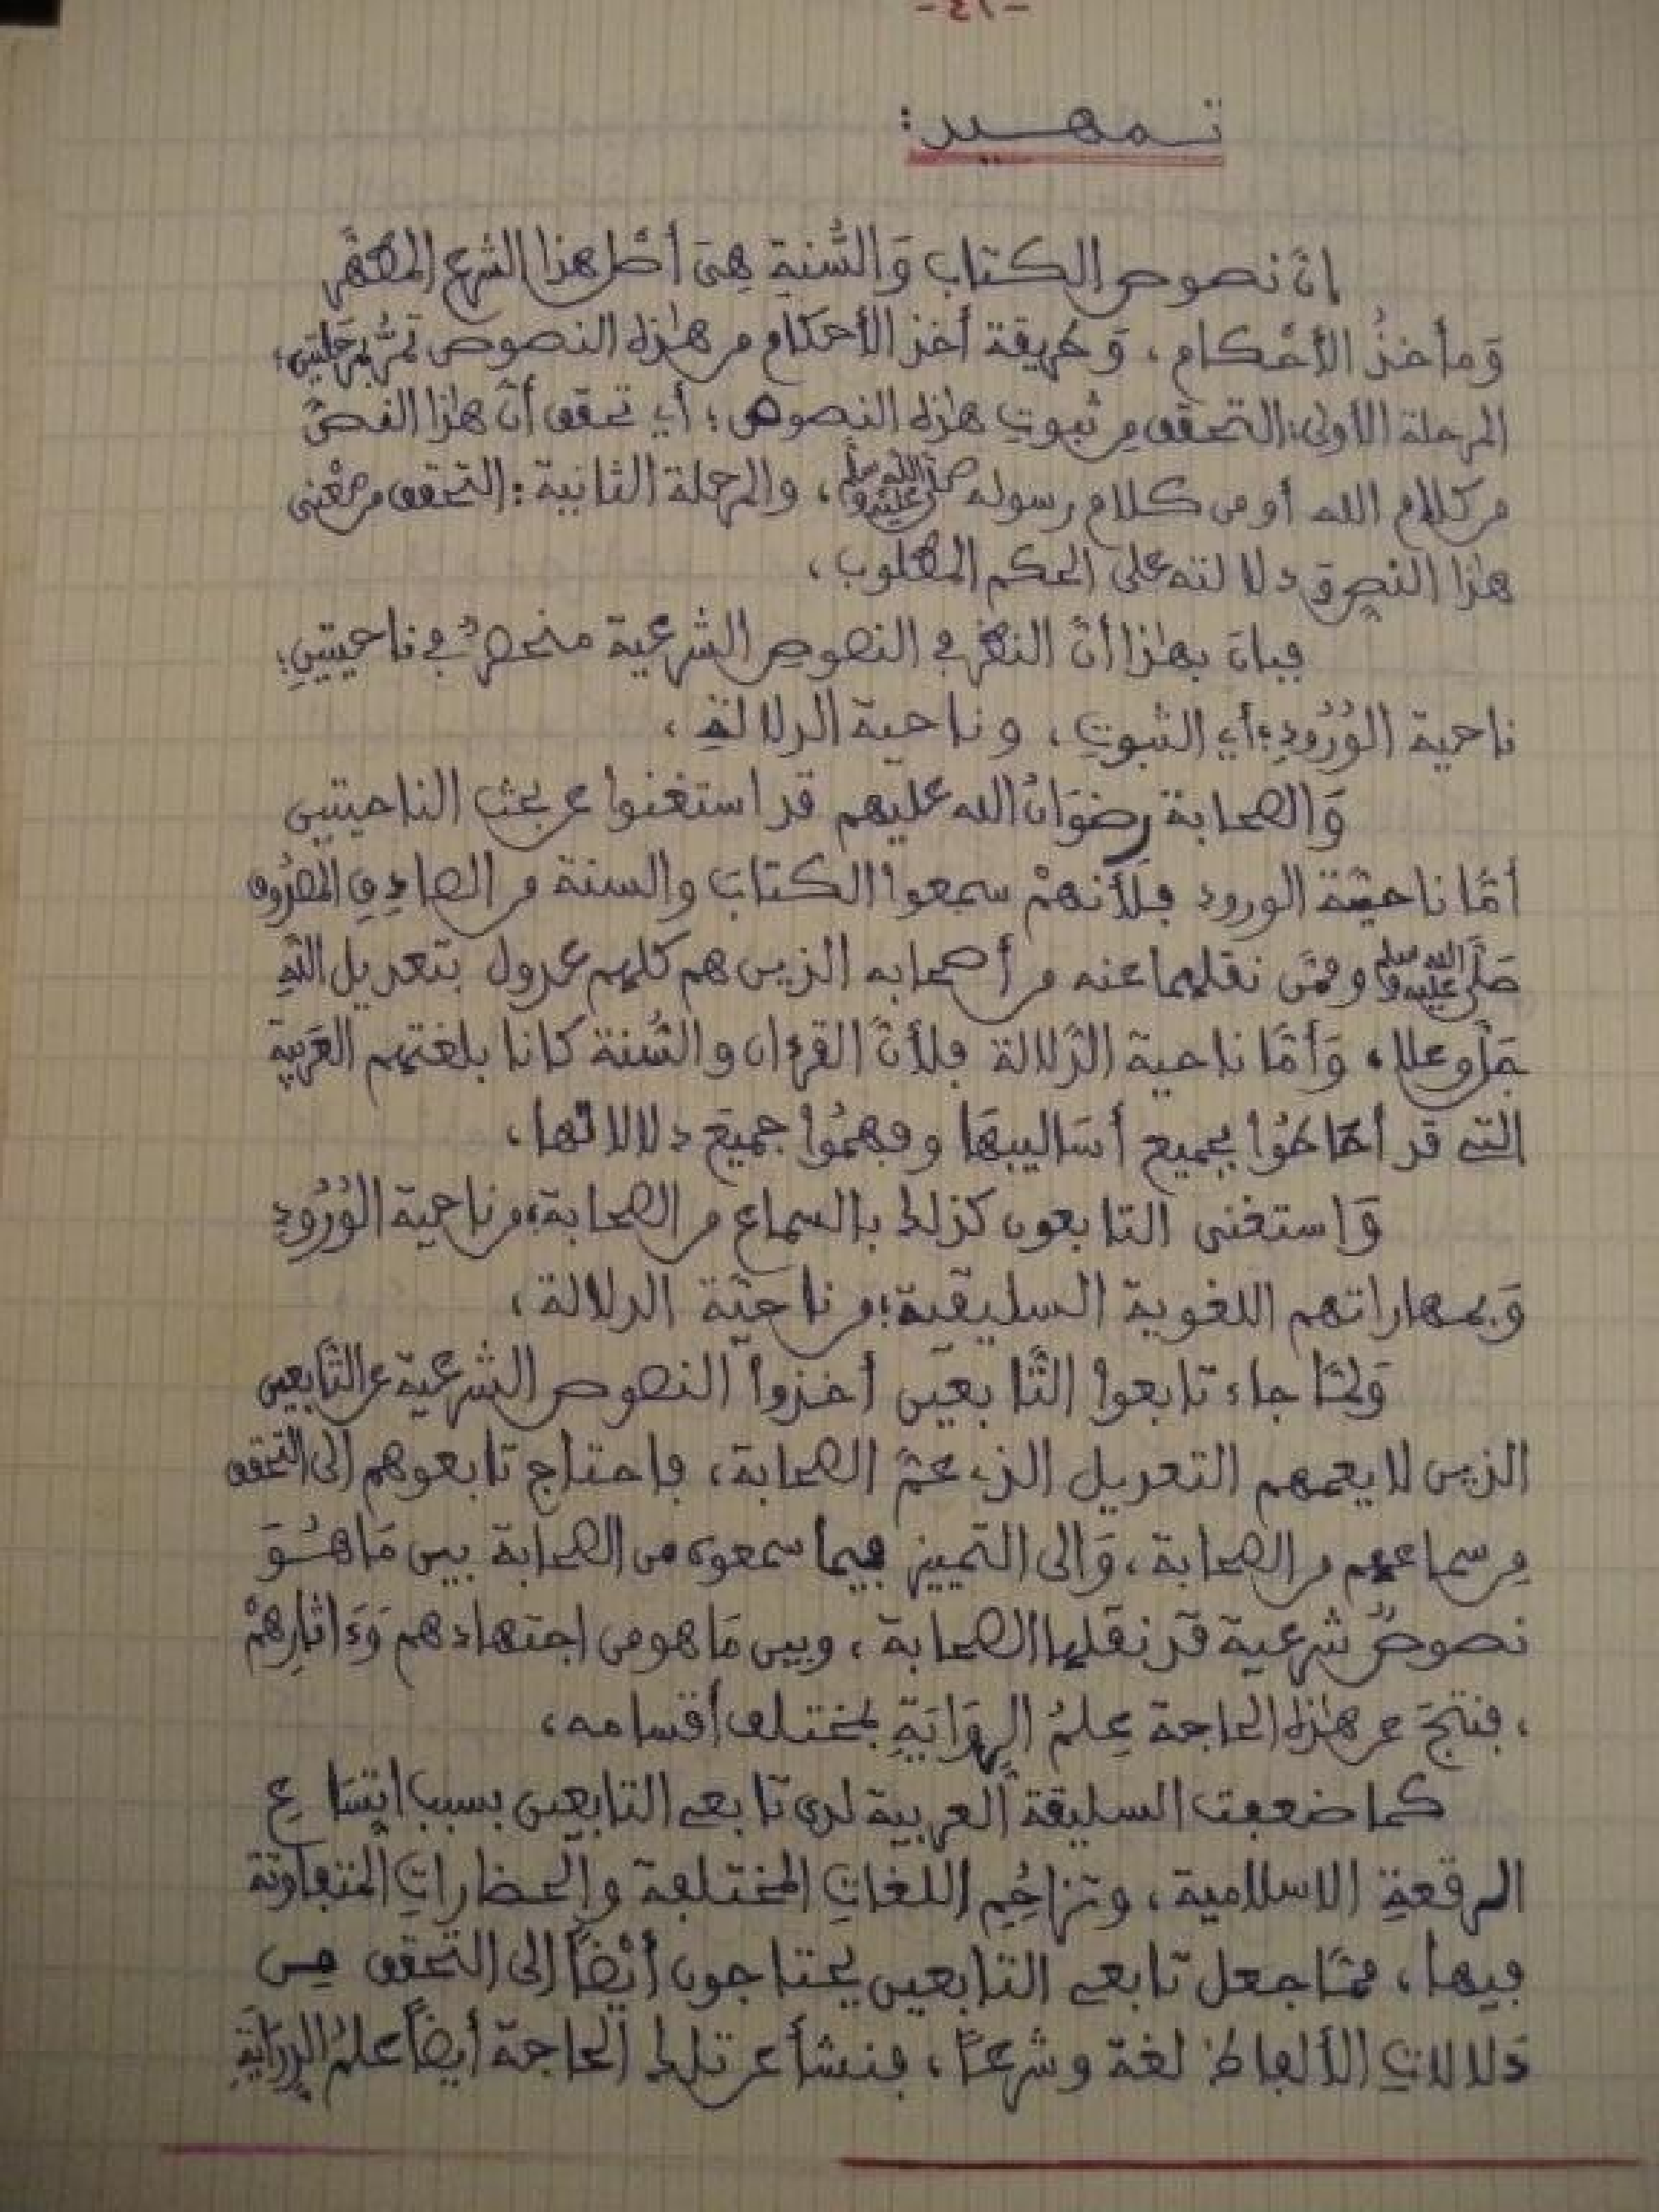 -٤١-
تـمهـيد:
إنّ نصوص الكتاب وَالسُّنة هِيَ أصْل هذا الشرع المطهَّر
وَمأخذُ الأحْكام، وَطريقة أخذ الأحكام من هٰذه النصوص تمُرُّ بمرحَلتينِ؛
المرحلة الأولى: التحقّق من ثبوتِ هٰذه النصوص؛ أي تحقق أنّ هٰذا النصّ
من كلام الله أو من كلام رسوله صلى الله عليه وسلم، والمرحلة الثانية: التحقق من معْنى
هٰذا النص ودلالته على الحكم المطلوب،
فبانَ بهٰذا أنّ النظر في النصوصِ الشرعية منحصرٌ في ناحيتينِ؛
ناحية الوُرُودِ؛ أي الثبوتِ، وناحية الدلالةِ،
وَالصحابة رضوَانُ الله عليهم قد استغنوا عن بحث الناحيتين
أمّا ناحيَة الورود فلأنهمْ سمعوا الكتابَ والسنة من الصادِقِ المصْدُوق
صَلَّى الله عليه وسلم وممّن نقلهما عنه من أصحابه الذين هم كلهم عدول بتعديل اللهِ
جَلَّ وعلا، وَأمّا ناحية الدَّلالة فلأنّ القرءان والسُّنة كانا بلغتهم العَرَبية
التي قد أحَاطُوا بجميع أسَاليبهَا وفهمُوا جميعَ دلالاتها،
وَاستغنى التابعون كذلك بالسماع من الصحابة؛ من ناحية الوُرُودِ
وَبمهاراتهم اللغوية السليقية؛ من ناحيَة الدلالة،
وَلمّا جاء تابعوا التَّابعين أخذوا النصوص الشرعية عن التَّابعين
الذين لا يعمهم التعديل الذي عمّ الصحابة، فاحتاج تابعوهم إلى التحقق
مِن سماعهم من الصحابة، وَإلى التمييز فيما سمعوه من الصحابة بين مَا هُـوَ
نصوصٌ شرعية قد نقلها الصحابة، وبين مَا هو من اجتهادهم وَءَاثارِهمْ
، فنتجَ عن هٰذه الحاجة عِلمُ الروَايَةِ بمختلف أقسامه،
كما ضعفت السليقة العربية لدى تابعي التابعين بسبب اتِّسَاعِ
الرقعةِ الاسلامية، وتزاحُمِ اللغاتِ المختلفة والحضاراتِ المتفاوتة
فيها، ممّا جعل تابعي التابعين يحتاجون أيْضاً إلى التحقق مِن
دَلالاتِ الألفاظ لغة وشرعًا، فنشأ عن تلك الحاجة أيضاً علمُ الدِرَايَةِ